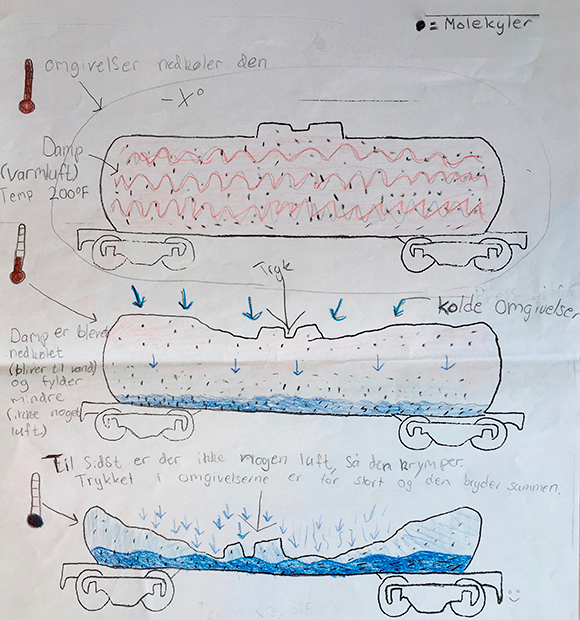 ● = Molekyler
omgivelser nedkøler den
-X°
Damp
(varmluft)
Temp 200°F
Tryk
kolde omgivelser
Damp er blevet
nedkølet
(bliver til vand)
og fylder
mindre
(ikke noget
luft)
Til sidst er der ikke nogen luft, så den krymper.
Trykket i omgivelserne er for stort og den bryder sammen.